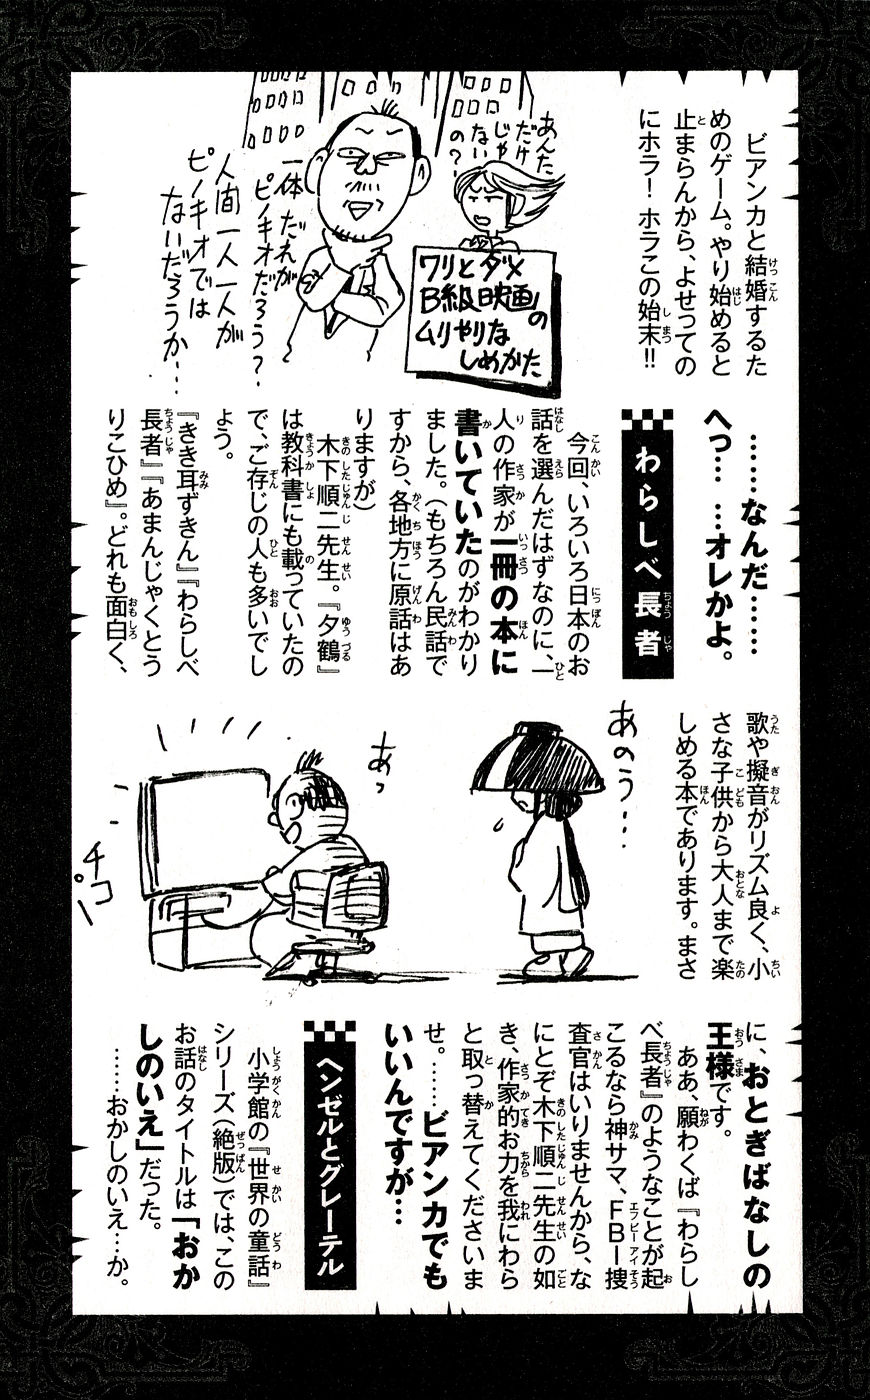 ビアンカと結婚するた
めのゲーム。やり始めると
止まらんから、よせっての
にホラ！ ホラこの始末!!
あんた
だけ
じゃ
ない
の？
ワリとダメ
B級映画の
ムリやりな
しめかた
一体だれが
ピノキオだろう？
人間一人一人が
ピノキオでは
ないだろうか…
……なんだ……
へっ……オレかよ。
わらしべ長者
今回、いろいろ日本のお
話を選んだはずなのに、一
人の作家が一冊の本に
書いていたのがわかり
ました。（もちろん民話で
すから、各地方に原話はあ
りますが）
木下順二先生。『夕鶴』
は教科書にも載っていたの
で、ご存じの人も多いでし
ょう。
『きき耳ずきん』『わらしべ
長者』『あまんじゃくとう
りこひめ』。どれも面白く、
歌や擬音がリズム良く、小
さな子供から大人まで楽
しめる本であります。まさ
あのう…
あっ
チコーン
に、おとぎばなしの
王様です。
ああ、願わくば『わらし
べ長者』のようなことが起
こるなら神サマ、FBI捜
査官はいりませんから、な
にとぞ木下順二先生の如
き、作家的お力を我にわら
と取っ替えてくださいま
せ。……ビアンカでも
いいんですが…
ヘンゼルとグレーテル
小学館の『世界の童話』
シリーズ（絶版）では、この
お話のタイトルは「おか
しのいえ」だった。
……おかしのいえ…か。